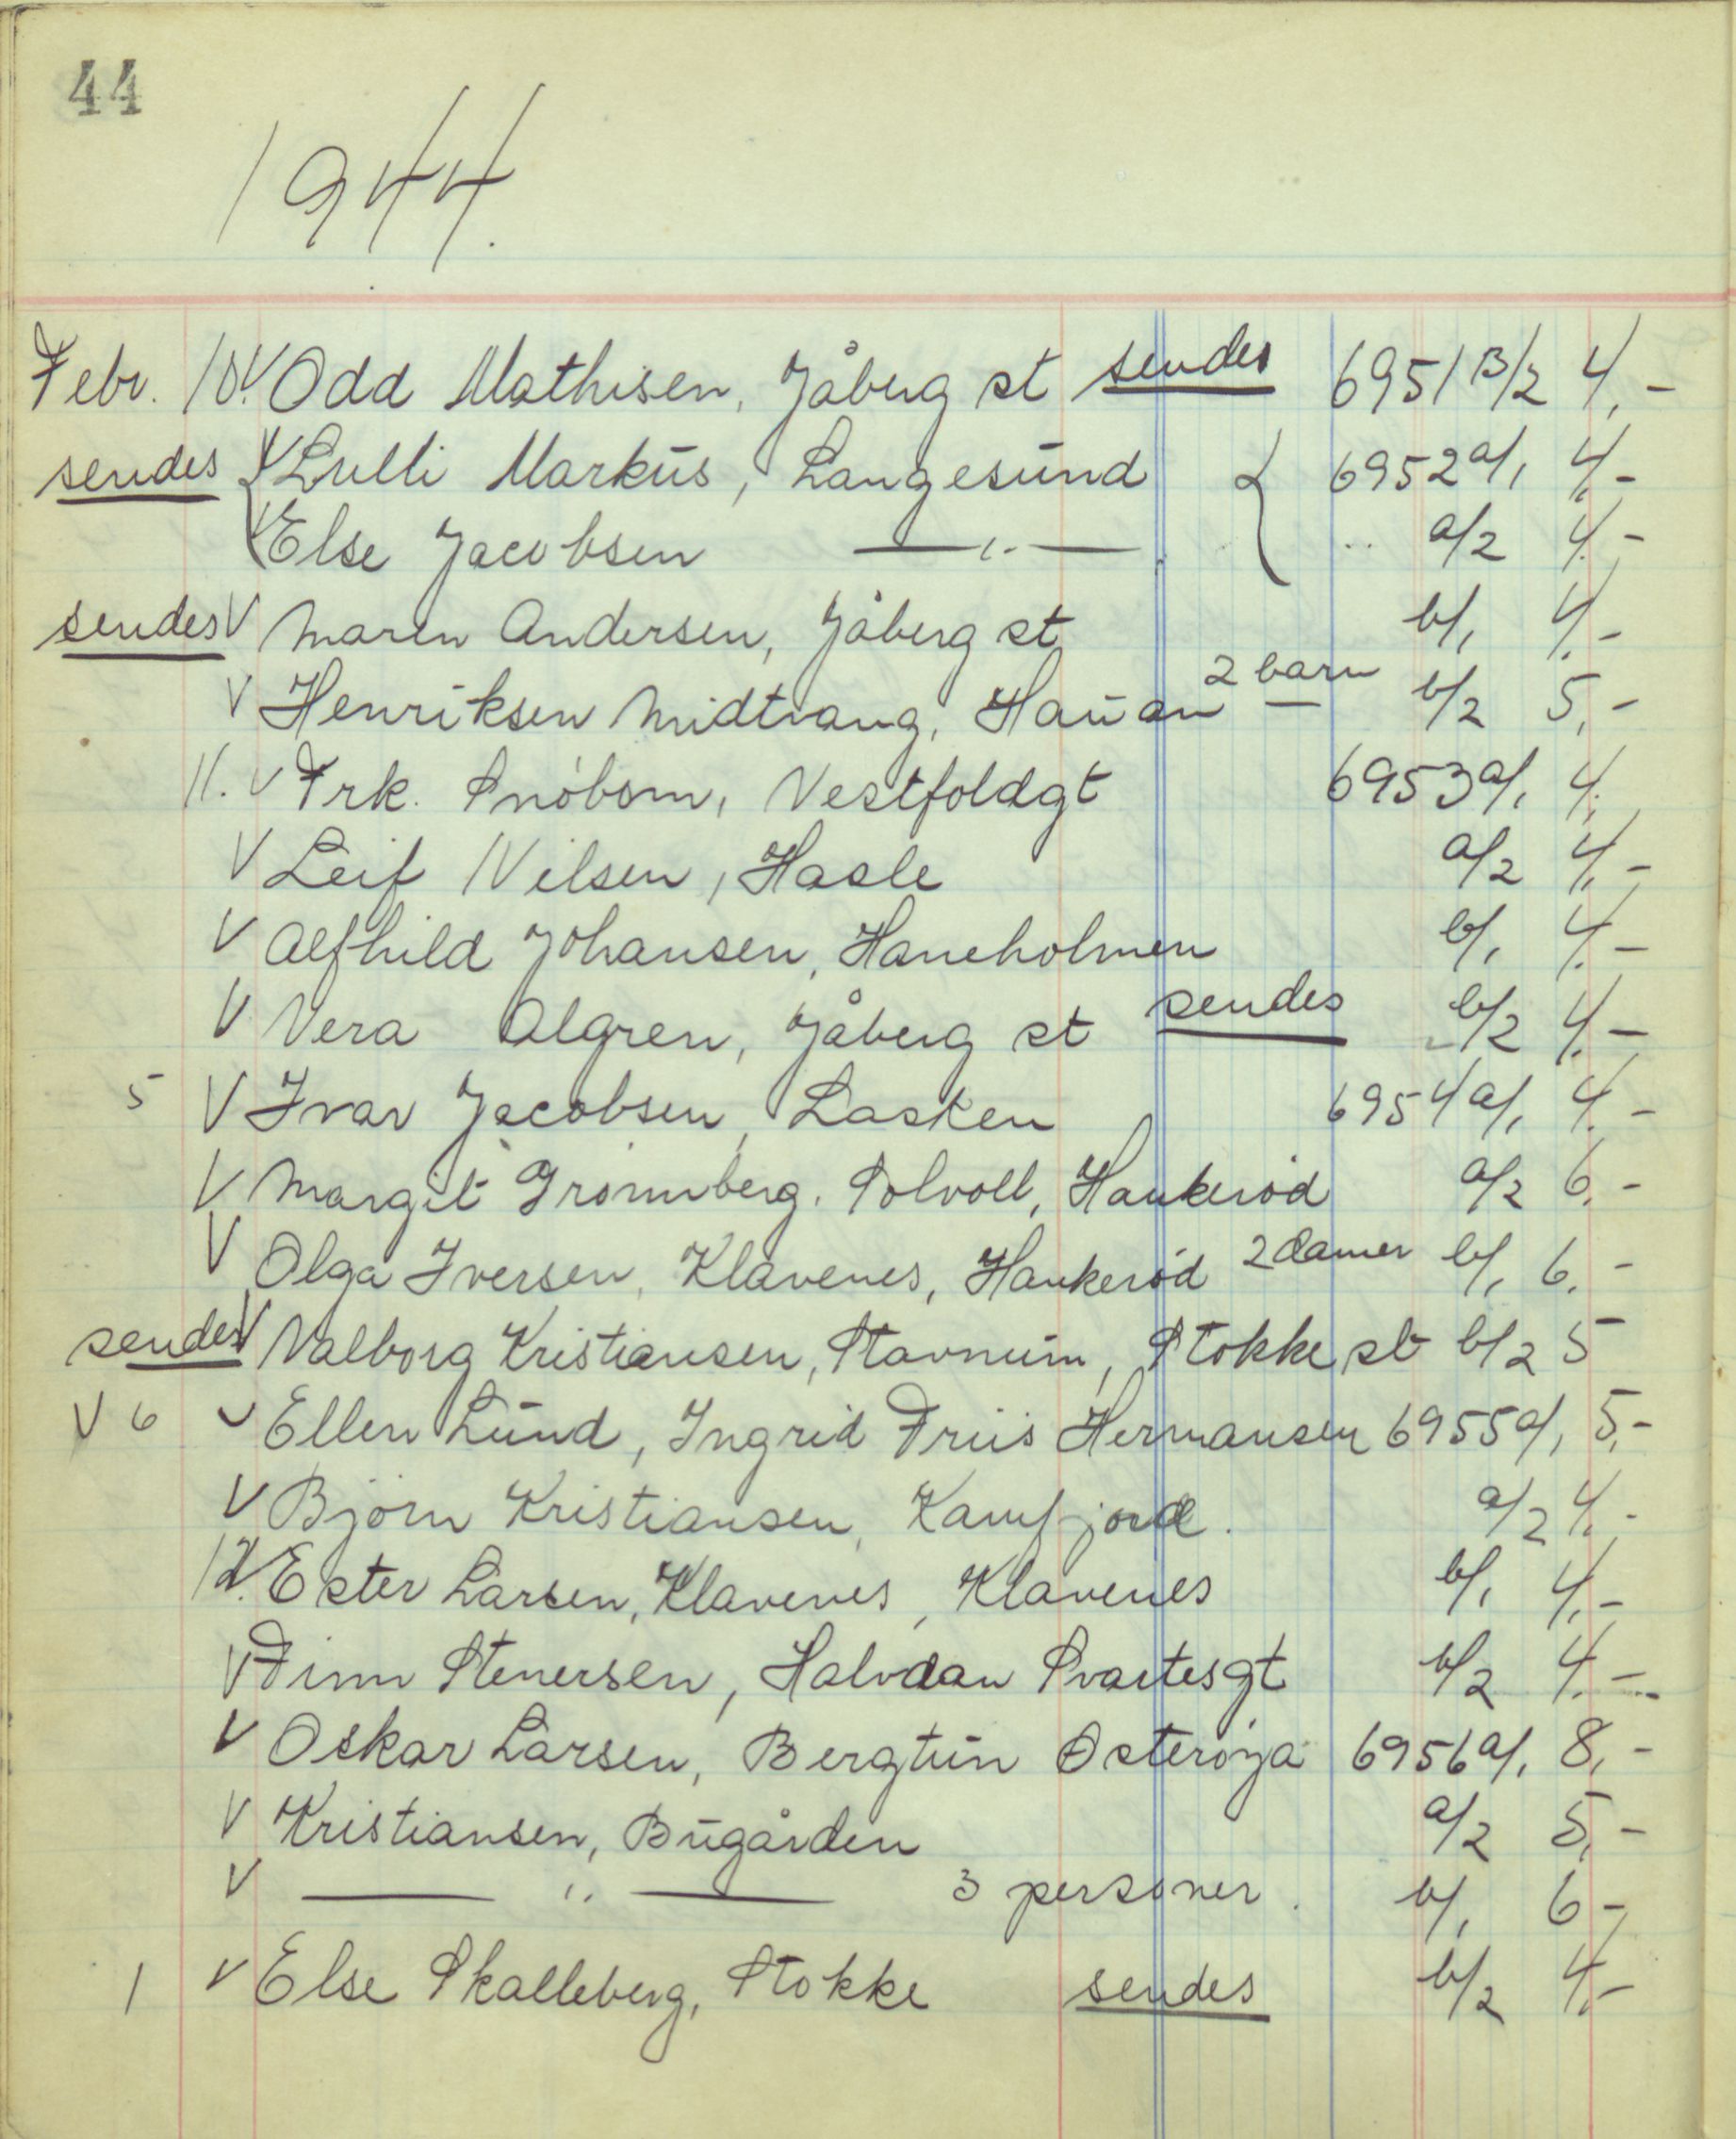 44
1944.
Febr. 10. V Odd Mathisen, Jåberg st sendes 6951 B/2 4,-
sendes V Lulli Markus, Langesund 6952 a/1 4,-
V Else Jacobsen —〃— .. a/2 4.-
sendes V Maren Andersen, Jåberg st b/1 4.-
V Henriksen Midtvang, Hauan 2 barn — b/2 5,-
11. V Frk. Snöbom, Vestfoldgt 6953 a/1 4,
V Leif Nilsen, Hasle a/2 4,-
V Alfhild Johansen, Haneholmen b/1 4.-
V Vera Algren, Jåberg st sendes b/2 4.-
5 V Ivar Jacobsen, Lasken 6954 a/1 4.-
V Margit Grönnberg. Solvoll, Haukeröd a/2 6.-
V Olga Iversen, Klavenes, Haukeröd 2 damer b/1 6.-
sendes V Valborg Kristiansen, Stavnum, Stokke st b/2 5-
V 6 V Ellen Lund, Ingrid Friis Hermansen 6955 a/1 5,-
V Björn Kristiansen, Kamfjord. a/2 4.-
12. V Ester Larsen, Klavenes, Klavenes b/1 4,-
V Finn Stenersen, Halvdan Svartesgt b/2 4.-
V Oskar Larsen, Bergtun Österöya 6956 a/1 8,-
V Kristiansen, Bugården a/2 5,-
V —〃— 3 personer. b/1 6-
1 V Else Skalleberg, Stokke sendes b/2 4,-